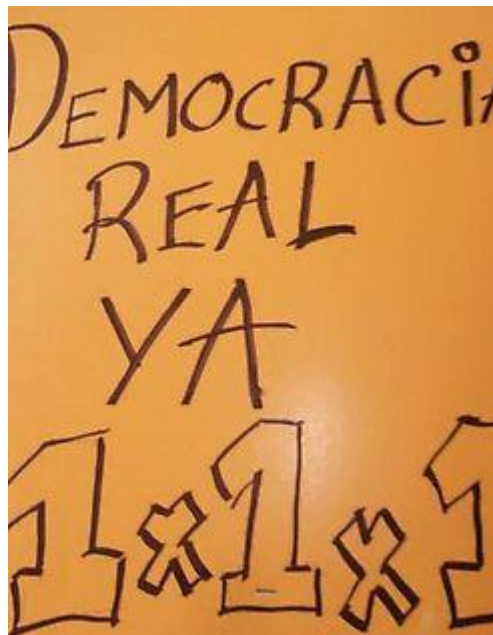 DEMOCRACiA
REAL
YA
1x1x1